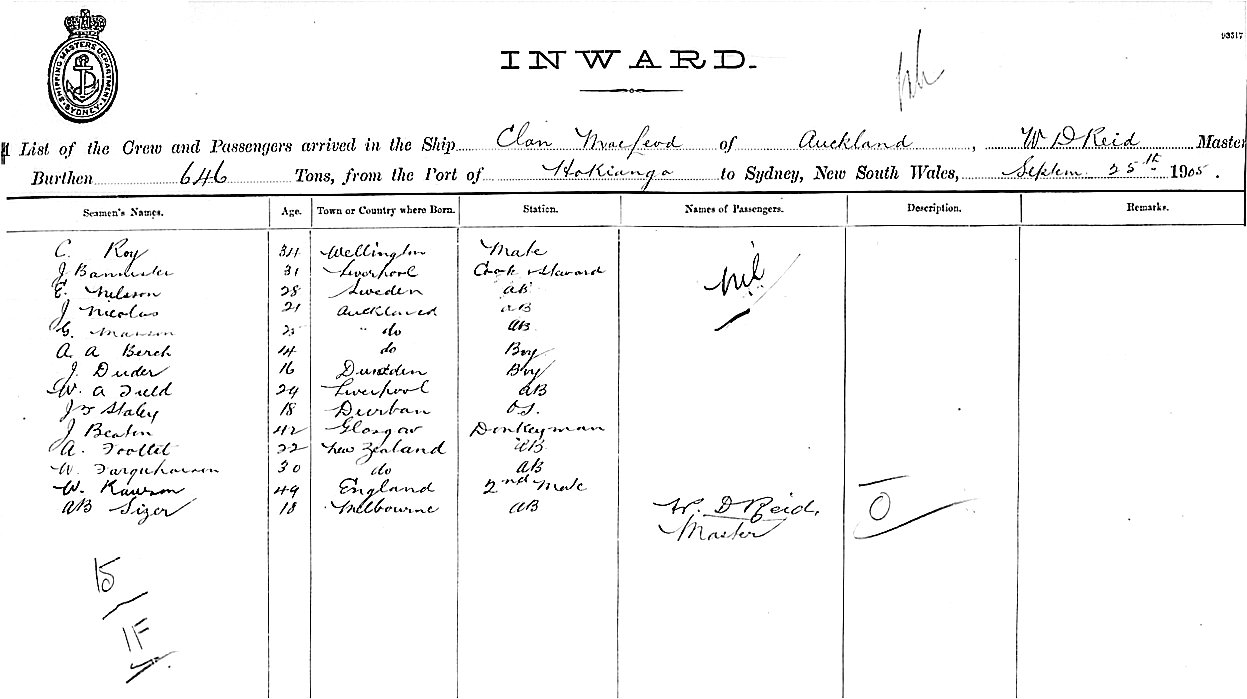 93517
SHIPPING MASTERS DEPARTMENT SYDNEY
INWARD.
A List of the Crew and Passengers arrived in the Ship Clan Macleod of Auckland, W D Reid Master
Burthen 646 Tons, from the Port of Hokianga to Sydney, New South Wales, Septem. 25th 1905.
Seamen's Names. Age. Town or Country where Born. Station. Names of Passengers. Description. Remarks.
C. Roy 34 Wellington Mate
J Bannister 31 Liverpool Cook & Steward nil
E. Nilsson 28 Sweden AB
J Nicolas 21 Auckland AB
G. 25 " do AB
A. A Berch 14 do Boy
J. Duder 16 Dunedin Boy
W. A Field 29 Liverpool AB
J Staley 18 Durban OS.
J Beaton 42 Glasgow Donkeyman
A. 22 New Zealand AB
W. Farquharson 30 do AB
W. Rawson 49 England 2nd Mate
AB Sizer 18 Melbourne AB W. D Reid,
Master
15
1F